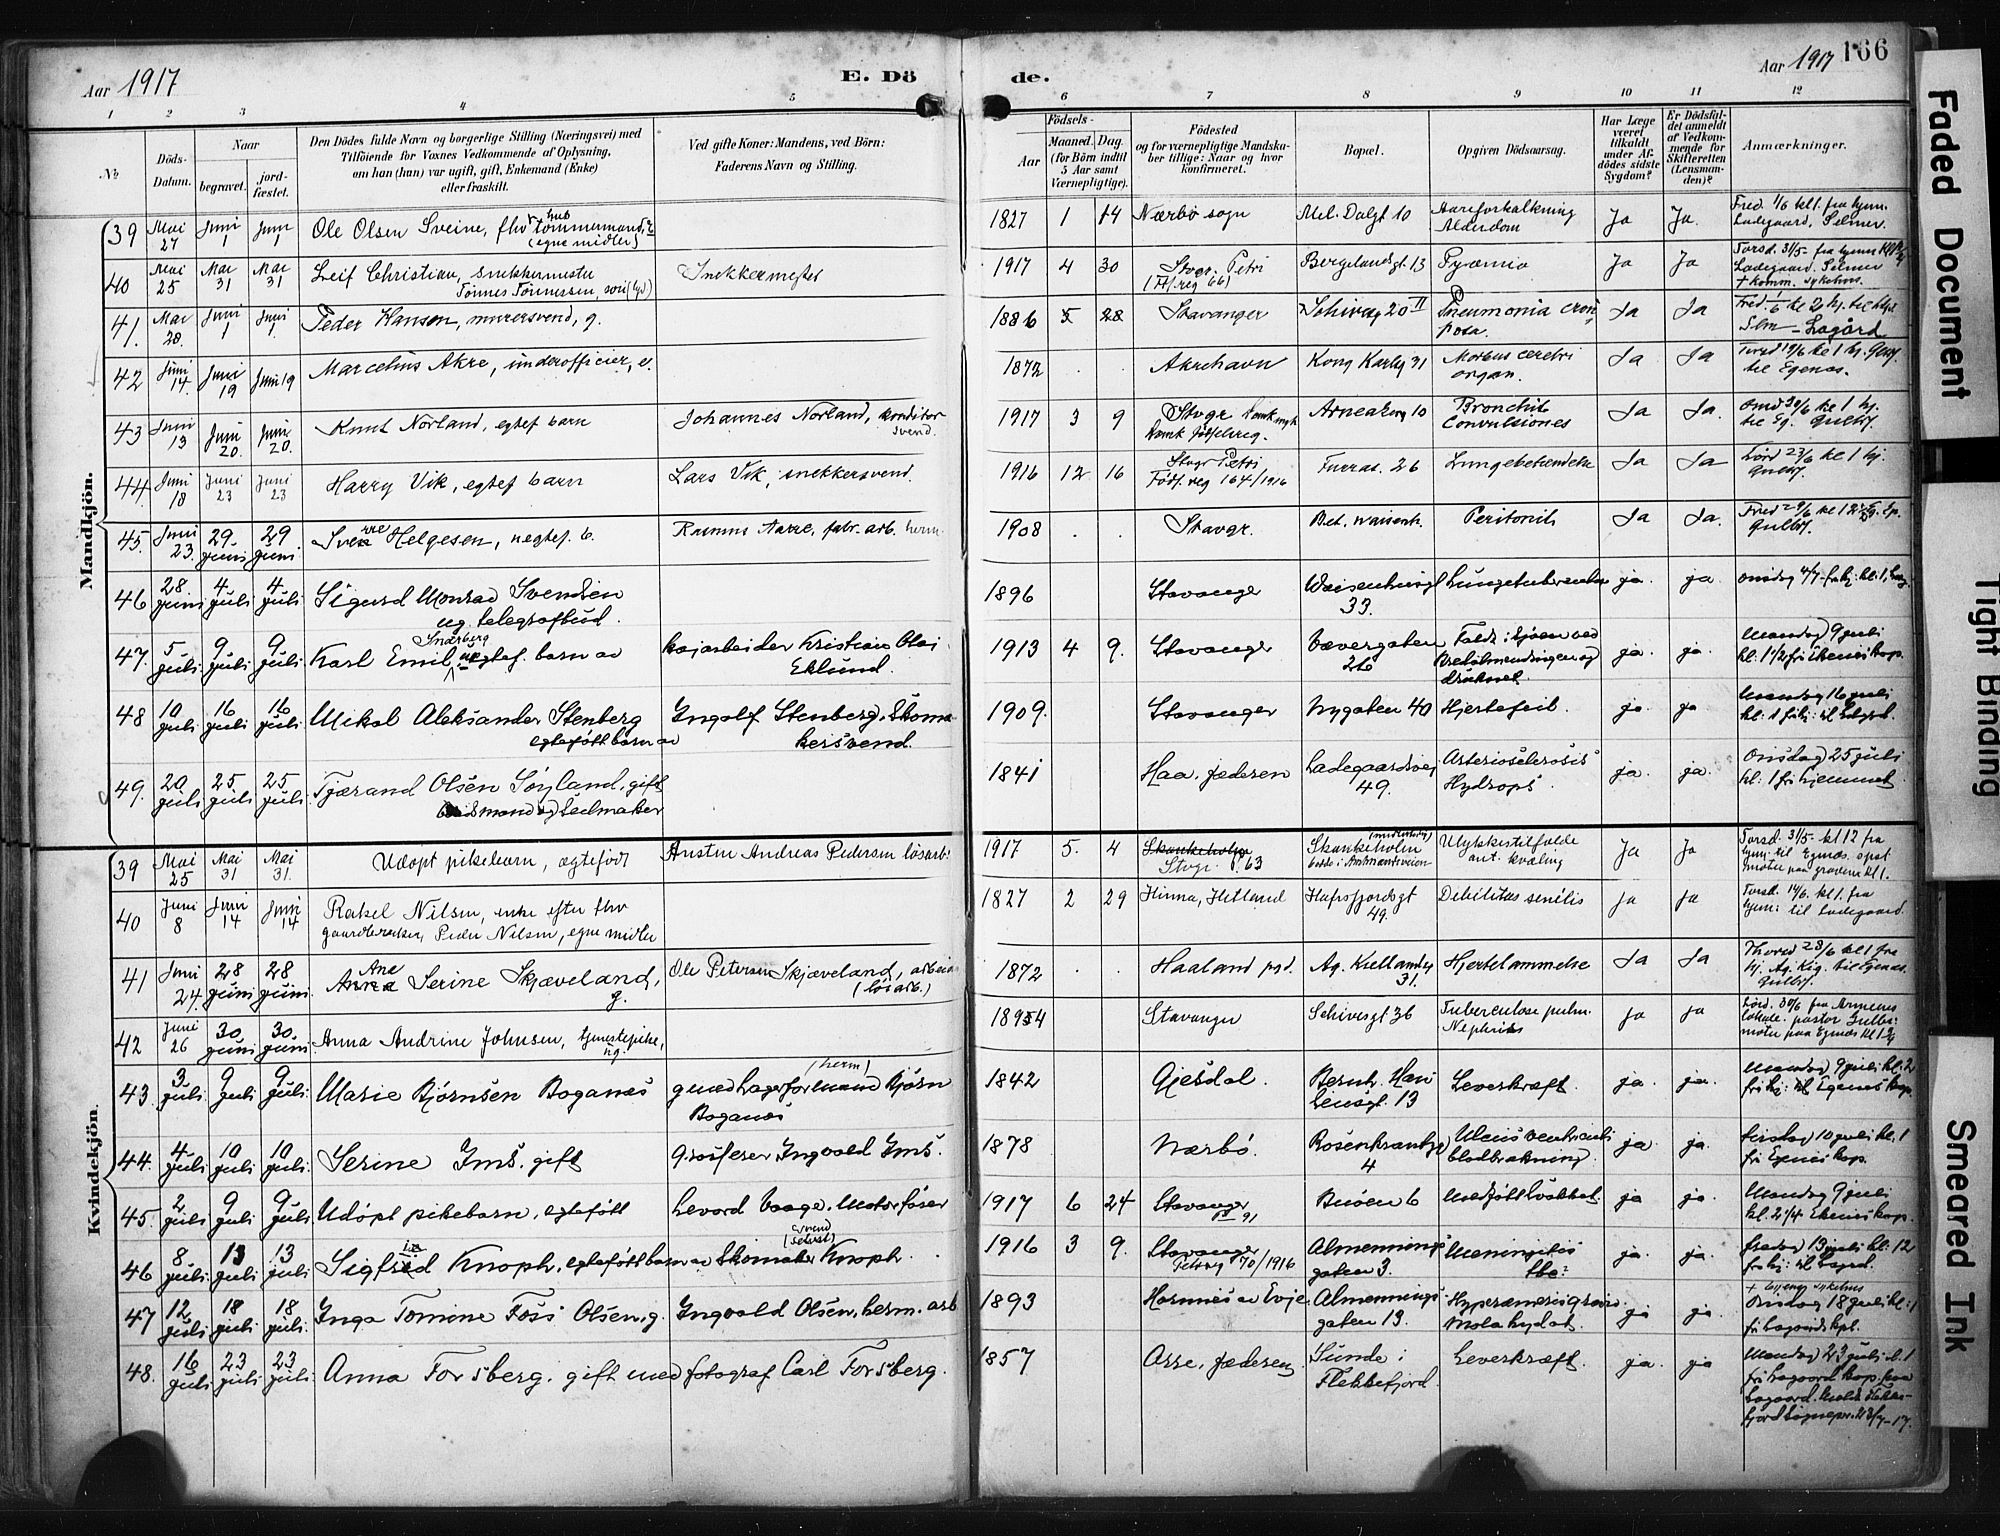 Aar 1917
E. Dö
de.
Aar 1917
166
1 2 3 4 5 6 7 8 9 10 11 12
№
Döds-
Datum.
Naar
begravet.
jord-
fæstet.
Den Dödes fulde Navn og borgerlige Stilling (Næringsvei) med
Tilföiende for Voxnes Vedkommende af Oplysning,
om han (hun) var ugift, gift, Enkemand (Enke)
eller fraskilt.
Ved gifte Koner: Mandens, ved Börn:
Faderens Navn og Stilling.
Födsels-
Aar
Maaned.
Dag.
(for Börn indtil
5 Aar samt
Værnepligtige).
Födested
og for værnepligtige Mandska-
ber tillige: Naar og hvor
konfirmeret.
Bopæl.
Opgiven Dödsaarsag.
Har Læge
været
tilkaldt
under Af-
dödes sidste
Sygdom?
Er Dödsfal-
det anmeldt
af Vedkom-
mende for
Skifteretten
(Lensman-
den)?
Anmærkninger.
Mandkjön.
39 Mai 27 Juni 1 Juni 1 Ole Olsen Sveine, fhv tømmermand,
(egne midler)
1827 1 14 Nærbø sogn Mel. Dalgt 10 Aareforkalkning
Alderdom Ja Ja. Fred. 1/6 kl 1. fra hjem.
Ladegaard, Selmer.
40 Mai 25 Mai 31 Mai 31 Leif Christian, snekkermester
Tønnes Tønnessen, søn
Snekkermester
1917 4 30 Stvgr. Petri Bergelandsgt. 13 Pyæmia Ja Ja Torsd. 31/5. fra hjem
Ladegaard. Selmer
+ komm. sykehus.
41. Mai 28. Juni 1 Juni 1 Peder Hansen, murersvend, g.
1886 5 28 Stavanger 20 II Pneumonia croup
posa. Ja Ja Fred. 1/6 kl 2
Lagård
42 Juni 14. Juni 19 Juni 19 Marcelius Akre, underofficier, e.
1872 . . Akrehavn Kong Karlsg 31 Morbus cerebri
organ. Ja Ja Tirsd 19/6 kl 1 hj.
til Egenæs.
43 Juni 13 Juni 20. Juni 20. Knut Norland, egtef barn
Johannes Norland, konditor
svend.
1917 3 9 Stvgr Domk
Domk fødselsreg. 10 Bronchit
Convulsiones Ja Ja. Onsd 20/6 kl 1 hj.
til Eg.
44. Juni 18 Juni 23 Juni 23 Harry Vik, egtef barn
Lars Vik, snekkersvend.
1916 12 16 Stvgr Petri
Føds. reg 164/1916 Furras. 26 Lungebetændelse Ja Ja Lørd 23/6 kl 1 hj.
45. Juni 23. 29 Juni 29 Juni Sverre Helgesen, uegtef. b.
Rasmus Aarre, fabr. arb. herm
1908 . . Stavgr. Bet. waisenh. Peritonit Ja Ja. Fred 29/6 kl 12
46 28 Juni 4 Juli 4 Juli Sigurd Monrad Svendsen
ug. telegrafbud.
1896 Stavanger Waisenhusgt
33. Lungetuberculose ja. ja. onsdag 4/7
47. 5 Juli 9 Juli 9 Juli Karl Emil Snarberg uegtef. barn av
kajarbeider Kristian Olai
Eklund.
1913 4 9. Stavanger Vævergaten
26 Faldt i sjøen ved
og
druknet. ja. ja. Mandag 9 juli
kl. 1 1/2 fr
48 10 juli 16 juli 16 juli Mikal Aleksander Stenberg
egtefött barn av
Ingolf Stenberg, Skoma-
kersvend.
1909. Stavanger Nygaten 40 Hjertefeil. ja. ja Mandag 16 juli
kl. 1
49. 20 juli 25 juli 25 juli Tjærand Olsen Søyland, gift
og Seilmaker
1841 Haa, Jæderen Ladegaardsvej
49. Arteriosclerosis
Hydrops ja. ja. Onsdag 25 juli
kl. 1 fr hjemmet
Kvindekjön.
39 Mai 25 Mai 31 Mai 31. Udøpt pikebarn, egtefødt
Austin Andreas Pedersen løsarb.
1917 5. 4 Skankeholm
Stvgr. P. 63 Skankeholm
Amtmandsveien Ulykkestilfælde
ant. kvæling Ja Ja Torsd. 31/5. kl 12 fra
hjem til Egenæs.
møte paa graven kl 1.
40 Juni 8 Juni 14 Juni 14 Rakel Nilsen, enke efter fhv
Peder Nilsen, egne midler
1827 2 29 Hinna, Hetland Hafrsfjordsgt
49. Debilitas senilis ja ja Torsd. 14/6. kl 1. fra
hjem: til Ladegaard.
41 Juni 24. 28 Juni 28 Juni Ane Serine Skjæveland,
g.
Ole Petersen Skjæveland, arbeid
(løsarb.)
1872 . . Haaland psd. Ag. Kiellandsg
31. Hjertelammelse Ja Ja Thorsd 28/6 kl 1 fra
hj. Ag. Kig. til Egenæs.
42 Juni 26 30 Juni 30 Juni Anna Andrine Johnsen, tjenestepike,
ug.
1894 Stavanger Schivesgt 36 Tuberculose pulm.
Nephritis ja ja Lørd. 30/6 fra Armeens
lokale. pastor
møte paa Egenæs kl 1
43. 3 juli. 9 juli 9 juli Marie Bjørnsen Boganæs
g med Lagerformand Bjørn (herm)
Boganæs
1842 Gjesdal. Bernh. Han
sensgt. 13 Leverkræft. ja. ja. Mandag 9 juli kl. 2
44. 4 juli 10 juli. 10 juli. Serine Ims. gift
Grosserer Ingvald Ims.
1878 Nærbø. Rosenkrantzg
4 Ulcus ventriculi
blodbrækning. ja. ja. tirsdag 10 juli kl. 1
fr Egenes kap.
45. 2 juli 9 juli 9 juli. Udöpt pikebarn, egtefött
Levard Vaage, Motorfører
1917 6 24 Stavanger
91 Buøen 6 Medfött svakhet. ja ja. Mandag 9 juli
kl. 2 1/4 Ekenes kap.
46 8 juli. 13 juli 13 juli Sigfrid Knoph, egtefött barn av
Skomaker Knoph.
1916 3 9. Stavanger
Petreg 70/1916 Almennings
gaten 3. Meningitis
tbc? ja. ja. fredag 13 juli kl: 12
47 12 juli 18 juli 18 juli. Inga Tomine Foss Olsen, g.
Ingvald Olsen, herm. arb
1893 Hornnes av Evje Almennings
gaten 13. Hyperæmesis gravid.
Mola hydat. ja ja. + sykehus
Onsdag 18 juli kl: 1
fr Lagaards kpl.
48. 16 juli 23 juli 23 juli. Anna Forsberg. gift med
fotograf Carl Forsberg.
1857 Orre, Jæderen Sunde i
Flekkefjord. Leverkræft. ja. ja Mandag 23 juli kl. 1
fr Lagaard kap. paa
Lagaard.
Faded Document
Tight Binding
Smeared Ink